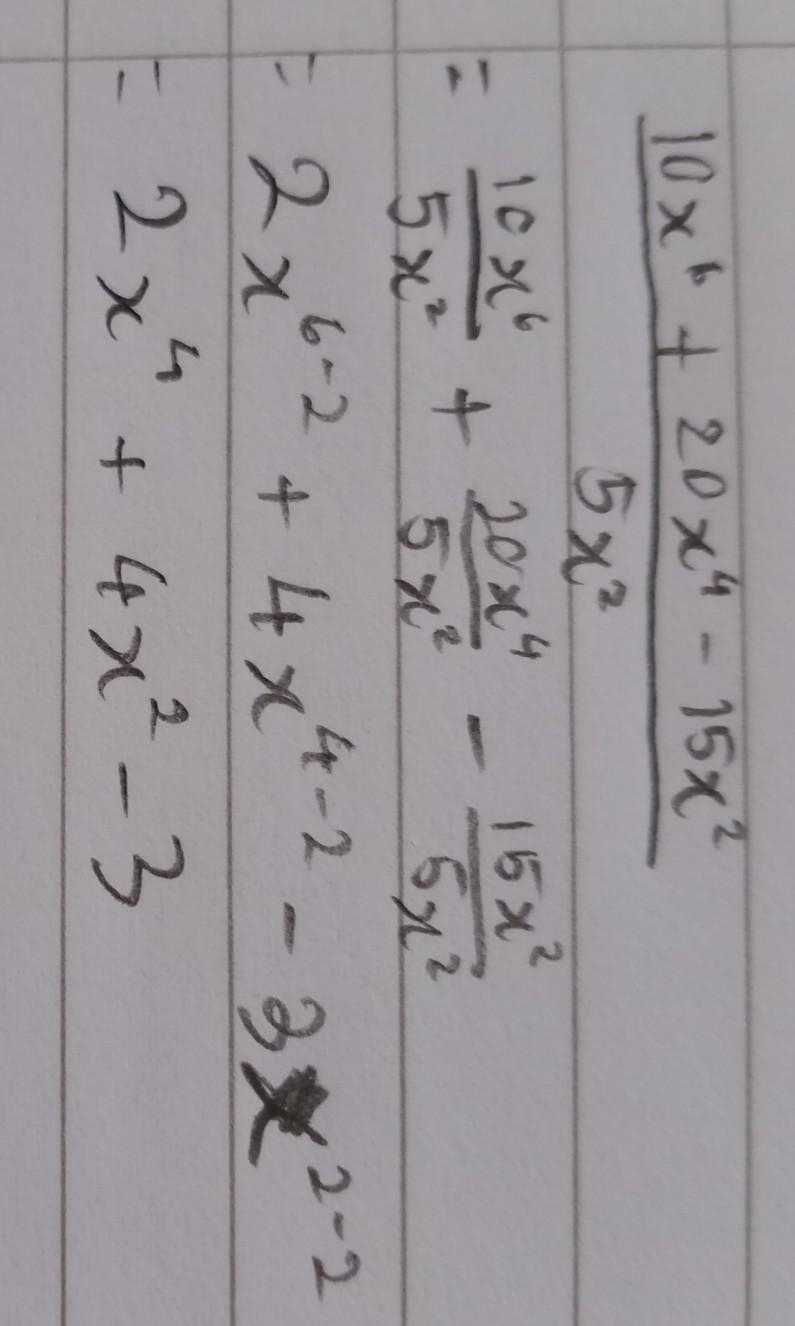 10x⁶ + 20x⁴ - 15x²
5x²
= 10x⁶/5x² + 20x⁴/5x² - 15x²/5x²
= 2x⁶⁻² + 4x⁴⁻² - 3x²⁻²
= 2x⁴ + 4x² - 3